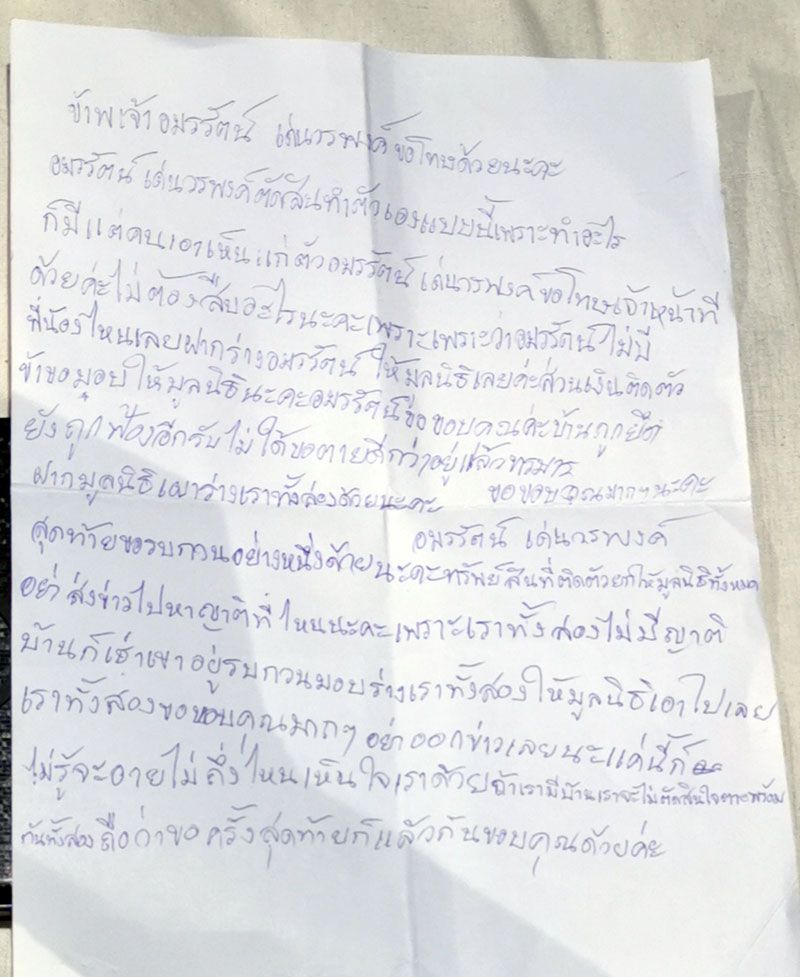 ข้าพเจ้าอมรรัตน์ เด่นวรพงค์ ขอโทษด้วยนะคะ
อมรรัตน์ เด่นวรพงค์ตัดสินทำตัวเองแบบนี้เพราะทำอะไร
ก็มีแต่คนเอาเห็นแก่ตัวอมรรัตน์ เด่นวรพงค์ขอโทษเจ้าหน้าที่
ด้วยค่ะไม่ต้องสืบอะไรนะคะเพราะเพราะว่าอมรรัตน์ไม่มี
พี่น้องไหนเลยฝากร่างอมรรัตน์ ให้มูลนิธิเลยค่ะส่วนเงินติดตัว
ข้าขอมอบให้มูลนิธินะคะอมรรัตน์ขอขอบคุณค่ะบ้านถูกยึด
ยังถูกฟ้องอีกรับไม่ได้ขอตายดีกว่าอยู่แล้วทรมาร
ฝากมูลนิธิเผาร่างเราทั้งสองด้วยนะคะ ขอขอบคุณมากๆนะคะ
อมรรัตน์ เด่นวรพงค์
สุดท้ายขอรบกวนอย่างหนึ่งด้วยนะคะทรัพย์สินที่ติดตัวยกให้มูลนิธิทั้งหมด
อย่าส่งข่าวไปหาญาติที่ไหนนะคะเพราะเราทั้งสองไม่มีญาติ
บ้านก็เช่าเขาอยู่รบกวนมอบร่างเราทั้งสองให้มูลนิธิเอาไปเลย
เราทั้งสองขอขอบคุณมากๆ อย่าออกข่าวเลยนะแค่นี้ก็
ไม่รู้จะอายไปถึงไหนเห็นใจเราด้วยถ้าเรามีบ้านเราจะไม่ตัดสินใจตายพร้อม
กันทั้งสองถือว่าขอครั้งสุดท้ายก็แล้วกันขอบคุณด้วยค่ะ